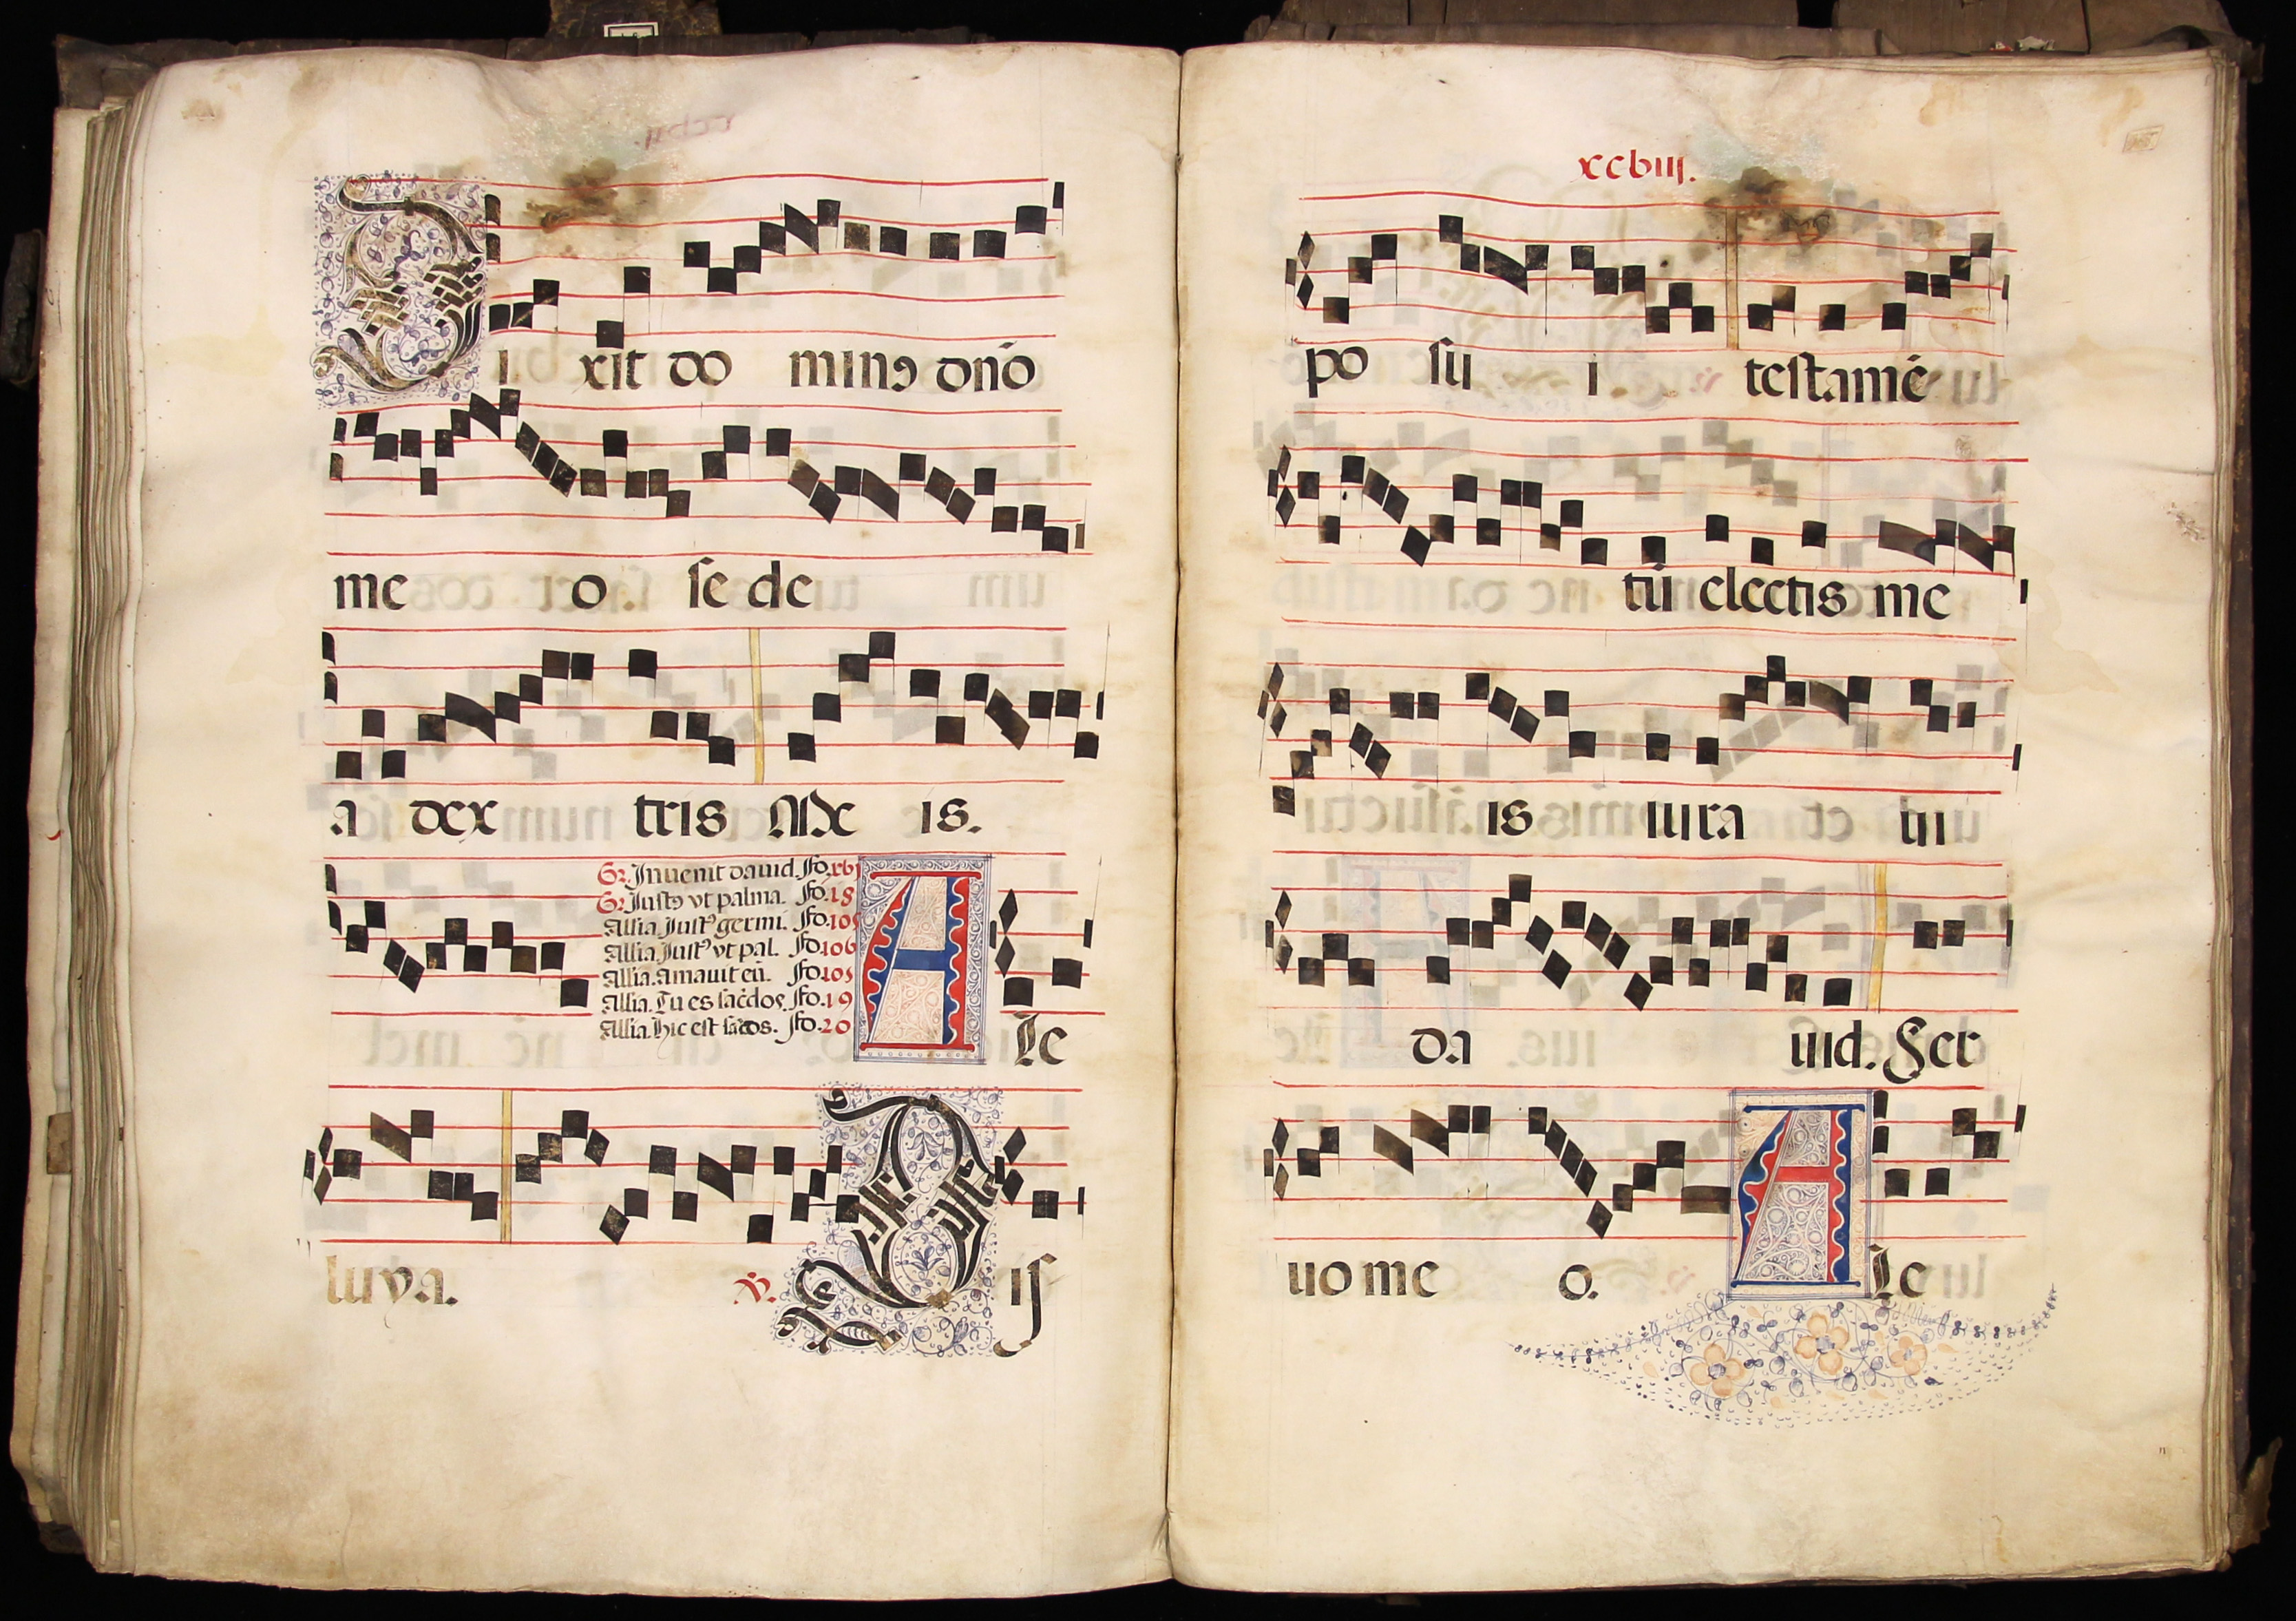 Di xit do minꝯ dnō
me o ſe de
a dex tris Me is.
Gr. Inuenit dauid. Fo. xbj
Gr. Iustꝯ vt palma. Fo. 18
Allīa. Iustꝯ germi. Fo. 105
Allīa. Iustꝯ vt pal. Fo. 106
Allīa. amauit eū. Fo. 105
Allīa. Tu es sac̄dos. Fo. 19
Allīa. Hic est sac̄dos. Fo. 20
A Le
luya. ℣. Diſ
xcbiij.
po ſu i testamē
tū electis me
is iura ui
da uid. Ser
uo me o. A Le